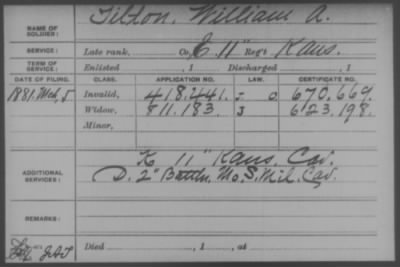 NAME OF SOLDIER: Tilton, William A.
SERVICE: Late rank, Co. E. 11" Reg't Kans.
TERM OF SERVICE: Enlisted , 1 Discharged , 1
DATE OF FILING. CLASS. APPLICATION NO. LAW. CERTIFICATE NO.
1881. Mch, 5 Invalid, 418.441. 670.669.
Widow, 811.183 623.198.
Minor,
K 11" Kans. Cav.
ADDITIONAL SERVICES: D. 2" Battln. Mo. S. Mil. Cav.
REMARKS:
Died , 1 , at